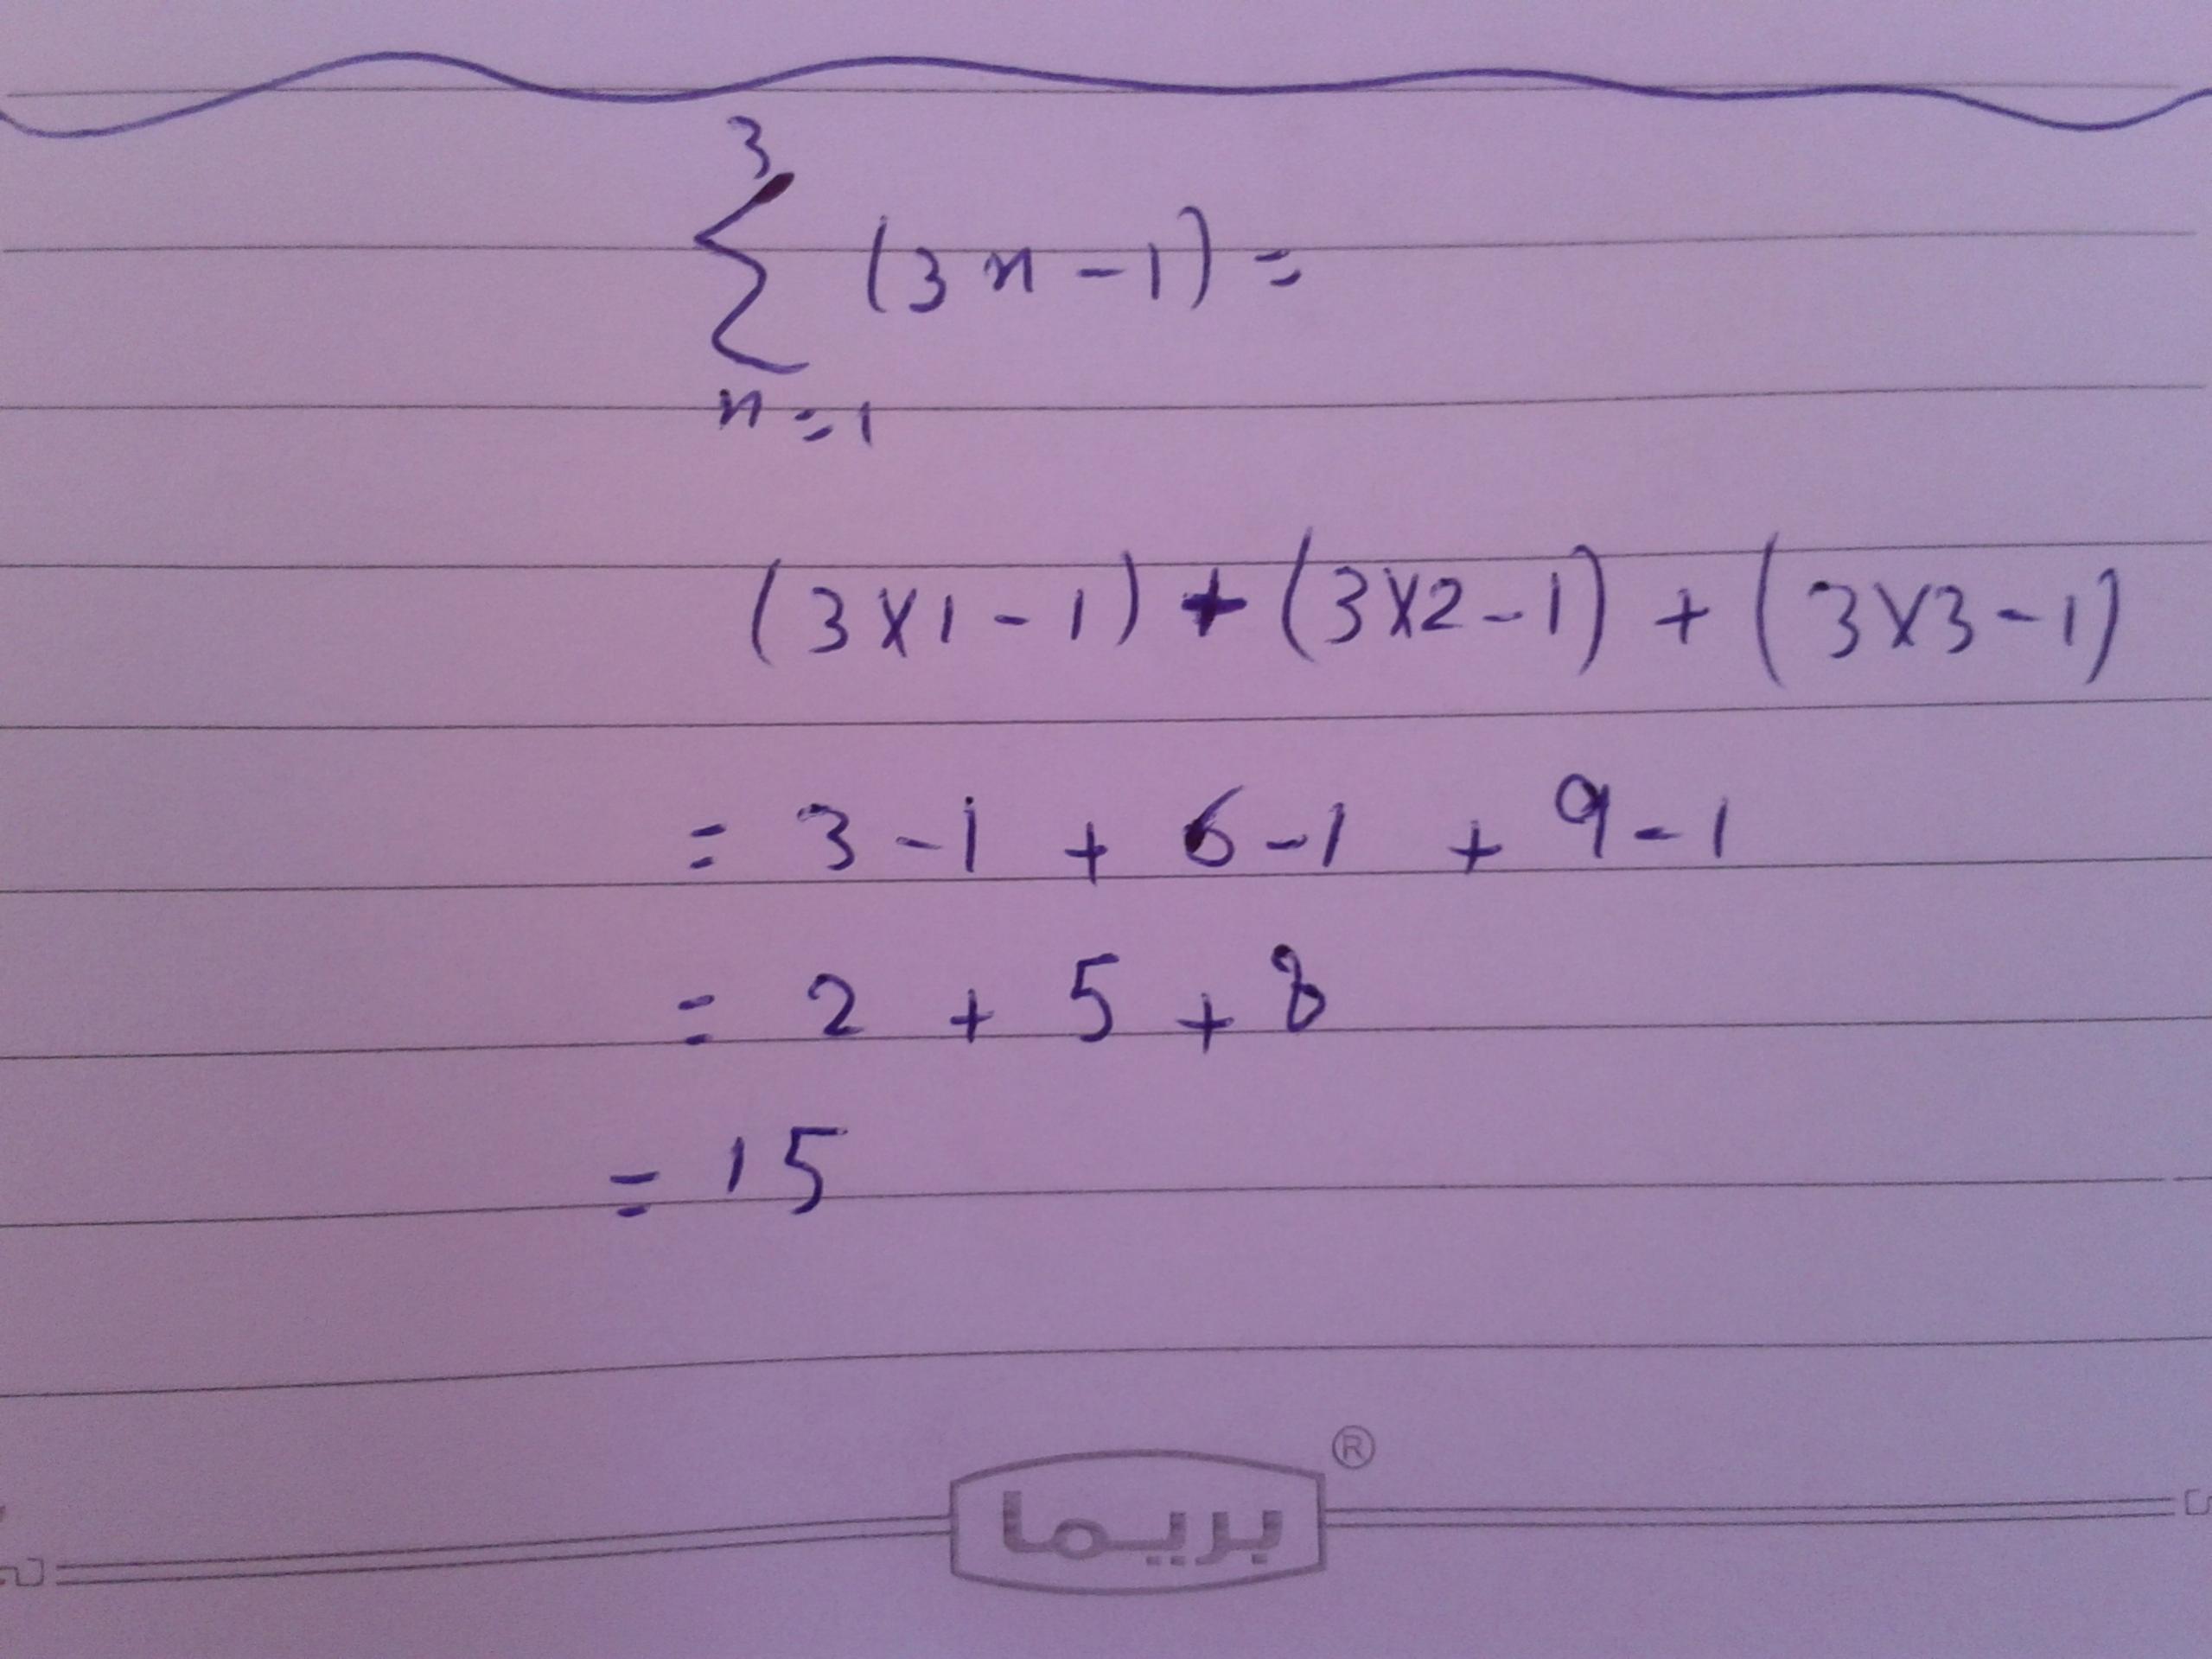 3
∑ (3n-1) =
n=1
(3×1-1) + (3×2-1) + (3×3-1)
= 3-1 + 6-1 + 9-1
= 2 + 5 + 8
= 15
بريما ®